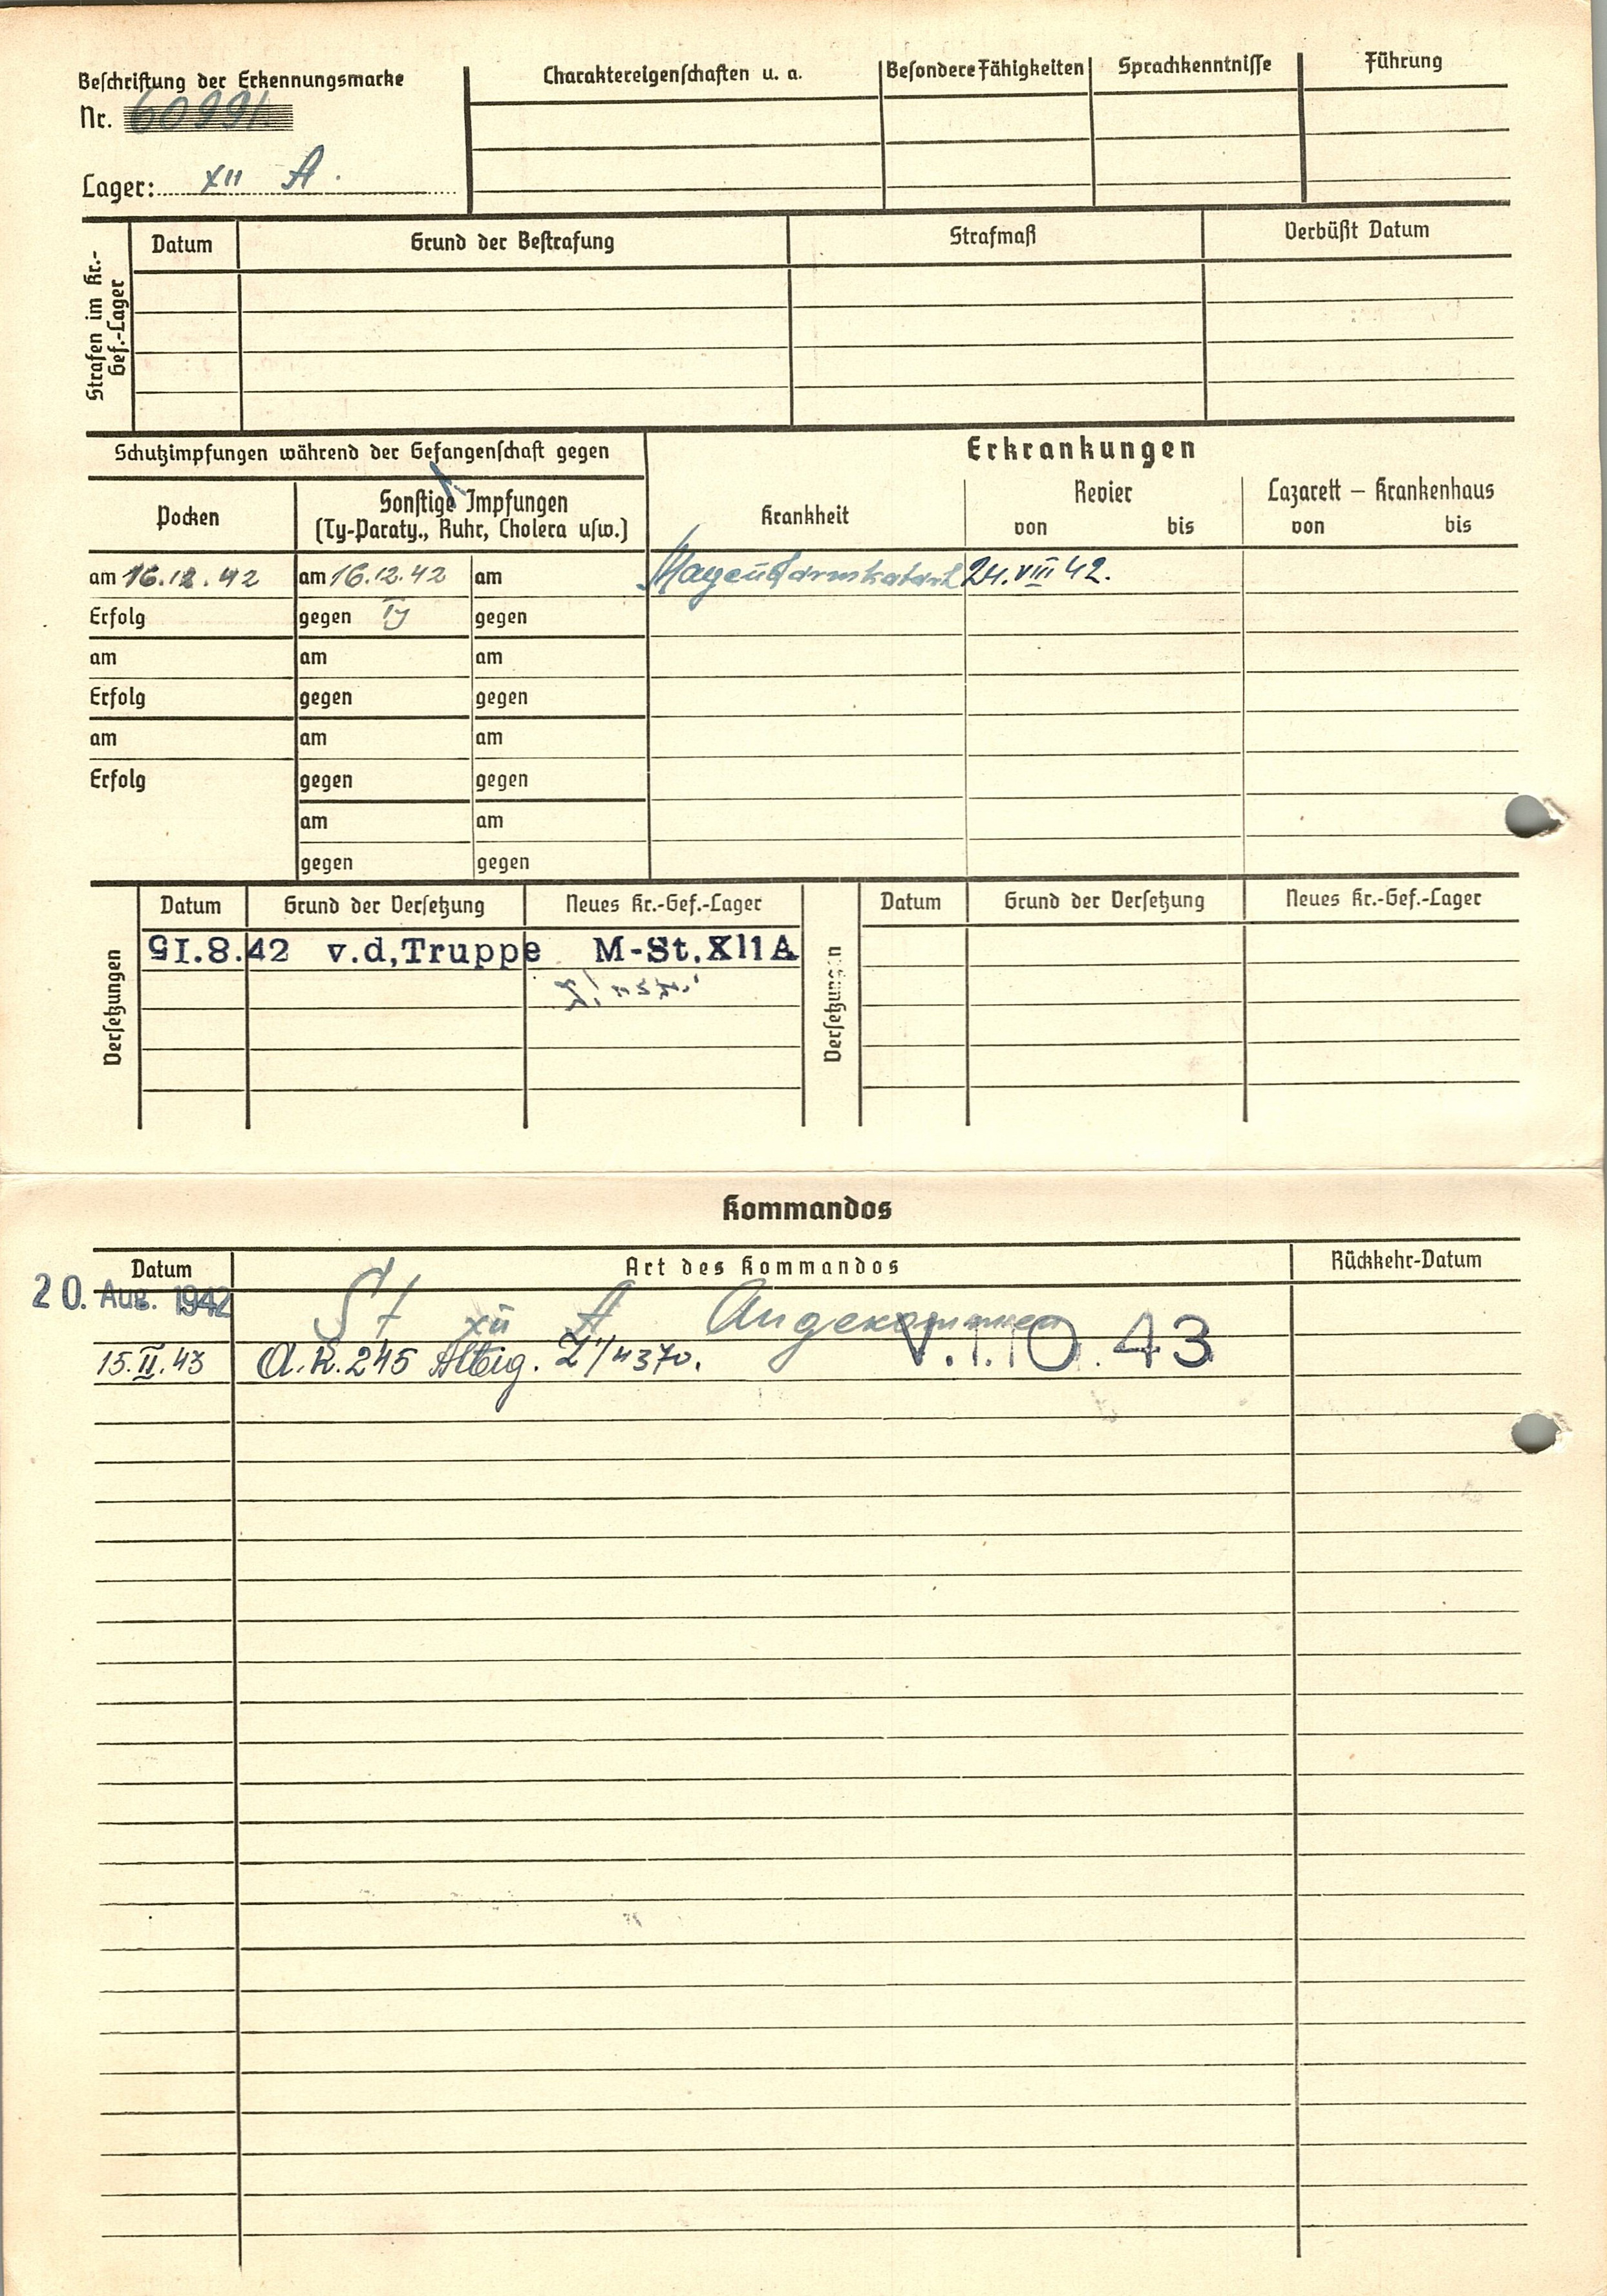 Beschriftung der Erkennungsmarke
Nr. 60991
Lager: XII A.
Charaktereigenschaften u. a.
Besondere Fähigkeiten
Sprachkenntnisse
Führung
Strafen im Kr.-
Gef.-Lager
Datum
Grund der Bestrafung
Strafmaß
Verbüßt Datum
Schutzimpfungen während der Gefangenschaft gegen
Pocken
Sonstige Impfungen
(Ty-Paraty., Ruhr, Cholera usw.)
am 16.12.42 am 16.12.42 am
Erfolg gegen Ty gegen
am am am
Erfolg gegen gegen
am am am
Erfolg gegen gegen
am am
gegen gegen
Erkrankungen
Krankheit
Revier
von bis
Lazarett – Krankenhaus
von bis
Magen u Darmkatarrh 24.VIII 42.
Versetzungen
Datum Grund der Versetzung Neues Kr.-Gef.-Lager
.8.42 v.d,Truppe M-St.XIIA
Versetzungen
Datum Grund der Versetzung Neues Kr.-Gef.-Lager
Kommandos
Datum Art des Kommandos Rückkehr-Datum
20. Aug. 1942 St XII A Angekommen
15.II.43 A.K. 245 V.1.10.43